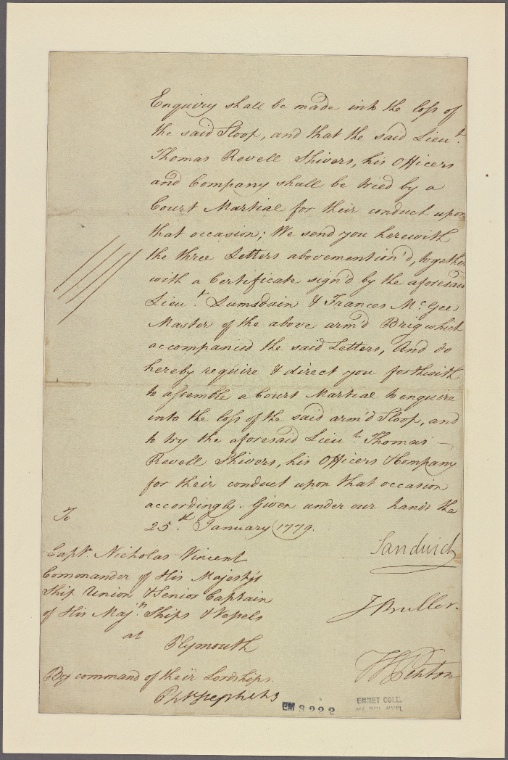 Enquiry shall be made into the loss of
the said Sloop, and that the said Lieut.
Thomas Rovell Shivers, his Officers
and Company shall be tried by a
Court Martial for their conduct upon
that occasion; We send you herewith
the three Letters abovemention'd, together
with a Certificate sign'd by the aforesaid
Lieut. Lumsdain & Frances McGee
Master of the above arm'd Brig which
accompanied the said Letters, And do
hereby require & direct you forthwith
to assemble a Court Martial to enquire
into the loss of the said arm'd Sloop, and
to try the aforesaid Lieut. Thomas
Rovell Shivers, his Officers & Company
for their conduct upon that occasion
accordingly. Given under our hands the
25th January 1779.
Sandwich
J Buller.
To
Captn. Nicholas Vincent
Commander of His Majesty's
Ship Union & Senior Captain
of His Maj's Ships & Vessels
at
Plymouth
By command of their Lordships.
Php Stephens
EM 8222
EMMET COLL.